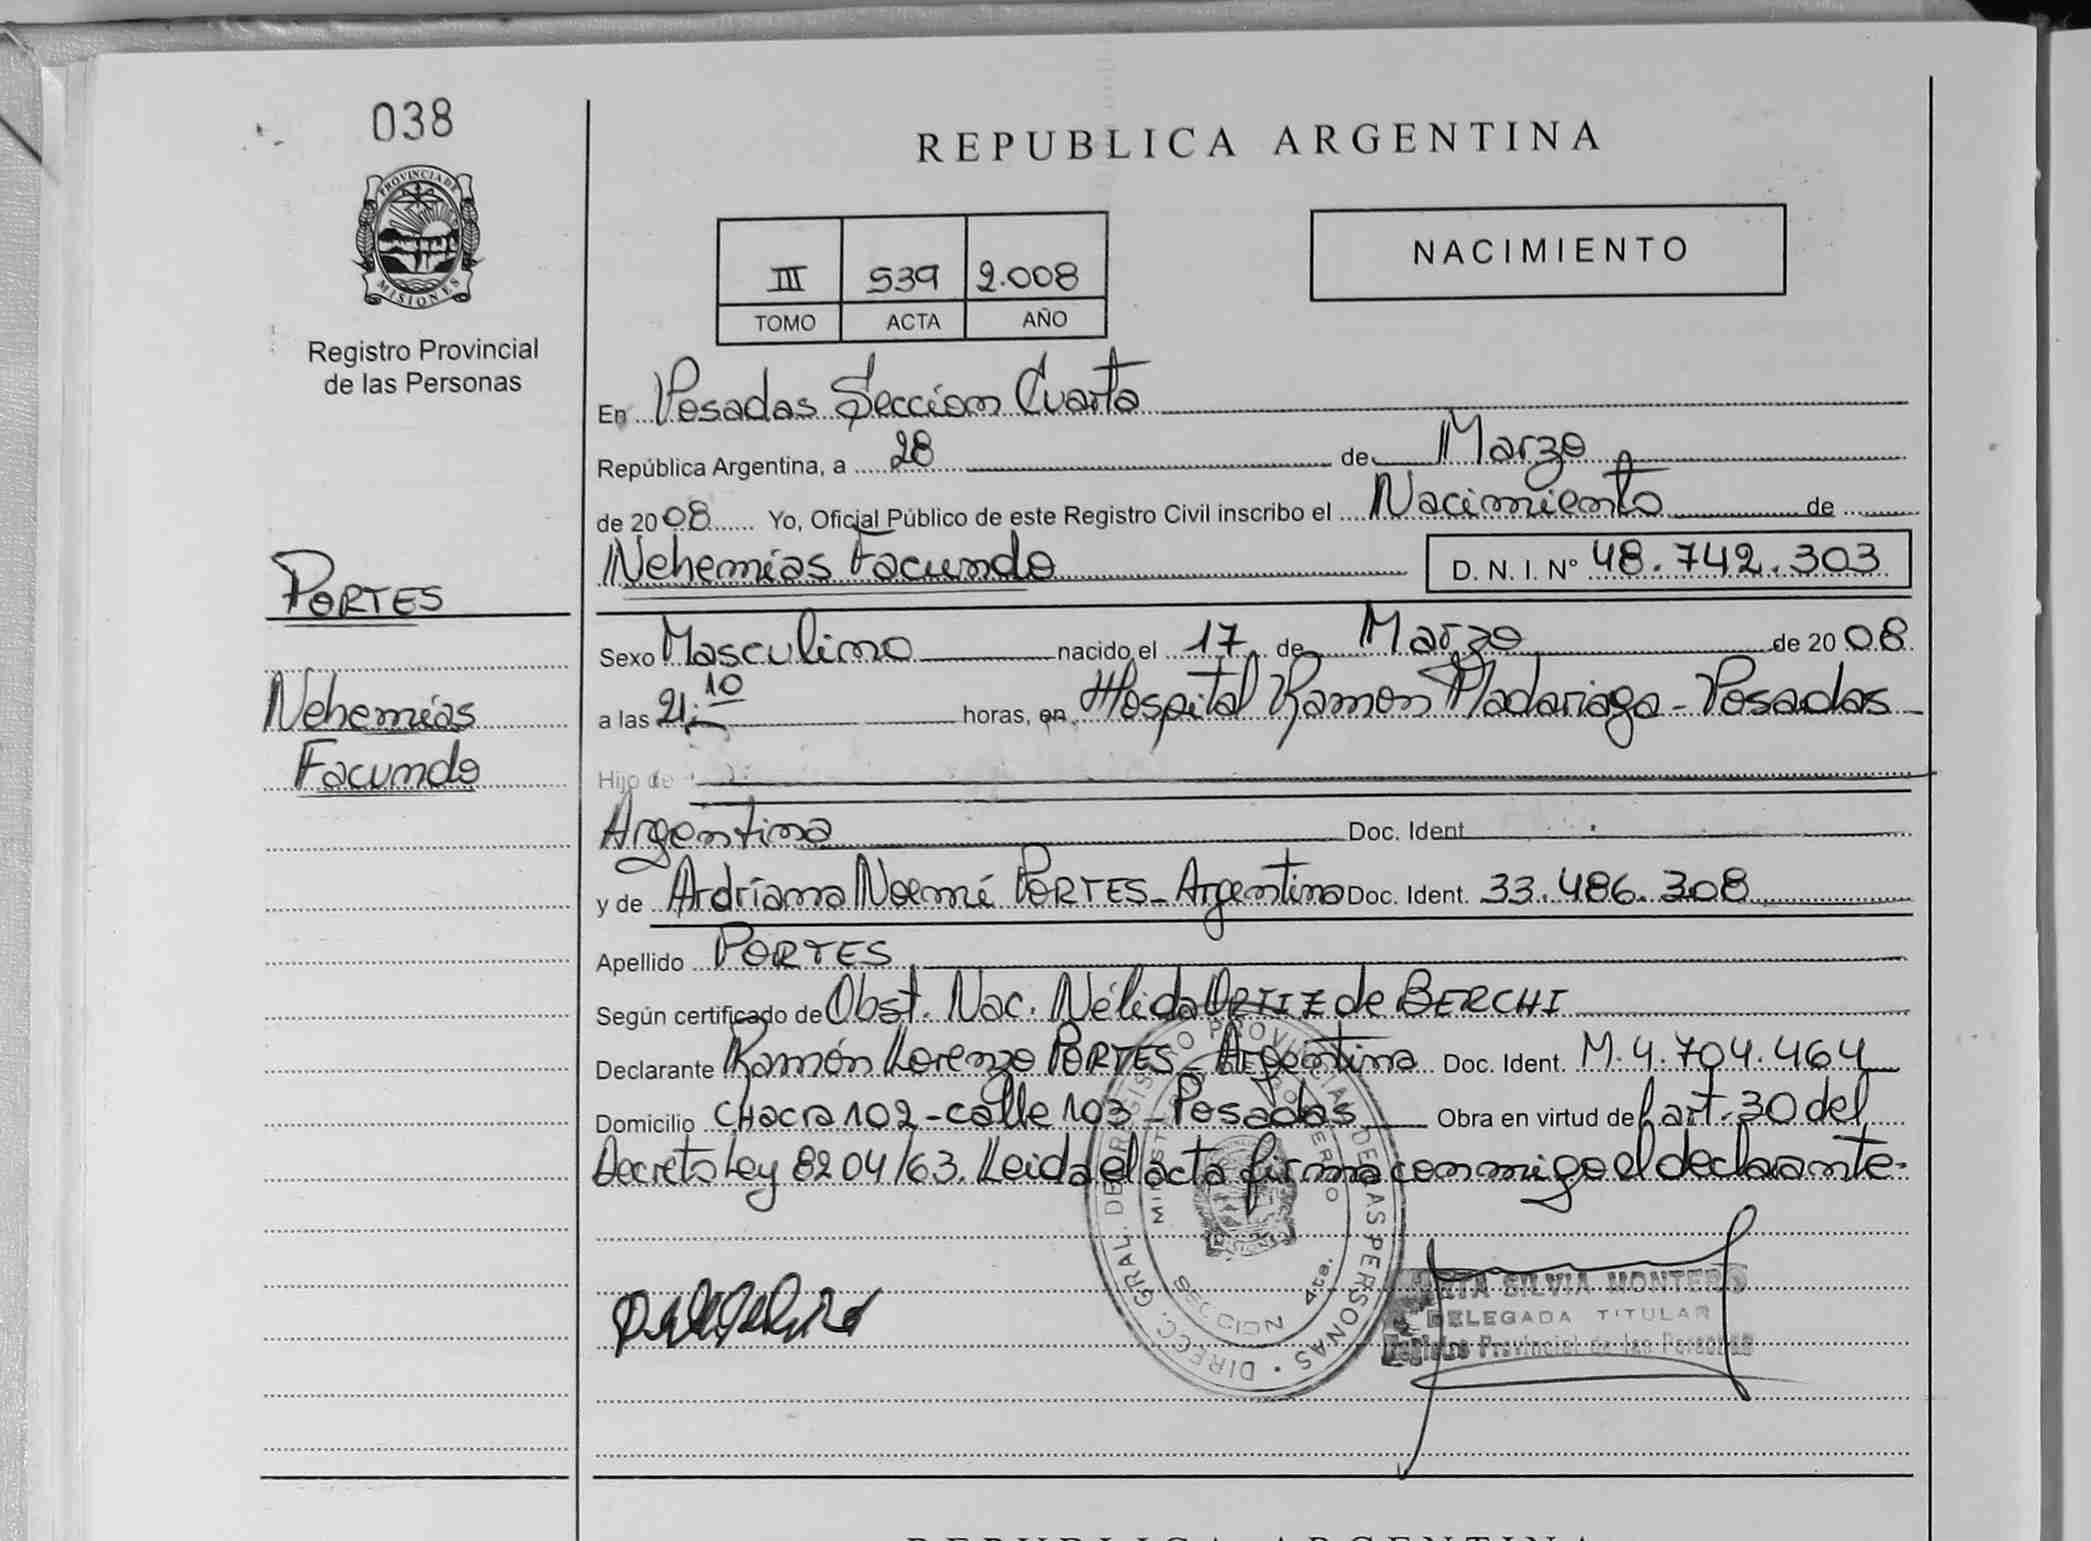 038
PROVINCIA DE
MISIONES
Registro Provincial
de las Personas
REPUBLICA ARGENTINA
III 539 2.008
TOMO ACTA AÑO
NACIMIENTO
En Posadas Sección Cuarta
República Argentina, a 28 de Marzo
de 2008 Yo, Oficial Público de este Registro Civil inscribo el Nacimiento de
Nehemías Facundo D. N. I. N° 48.742.303
PORTES
Sexo Masculino nacido el 17 de Marzo de 2008
Nehemías
a las 21:10 horas, en Hospital Ramon Madariaga - Posadas -
Facundo
Hijo de
Argentina Doc. Ident.
y de Ardriana Noemí PORTES - Argentina Doc. Ident. 33.486.308
Apellido PORTES
Según certificado de Obst. Nac. Nélida ORTIZ de BERCHI
Declarante Ramón Lorenzo PORTES - Argentina Doc. Ident. M.4.704.464
Domicilio Chacra 102 - calle 103 - Posadas Obra en virtud del art. 30 del
Decreto Ley 8204/63. Leida el acta firma conmigo el declarante.
DIREC. GRAL. DE REGISTRO PROVINCIAL DE LAS PERSONAS
SECCION 4ta.
SILVIA MONTERO
DELEGADA TITULAR
Registro Provincial de las Personas
REPUBLICA ARGENTINA